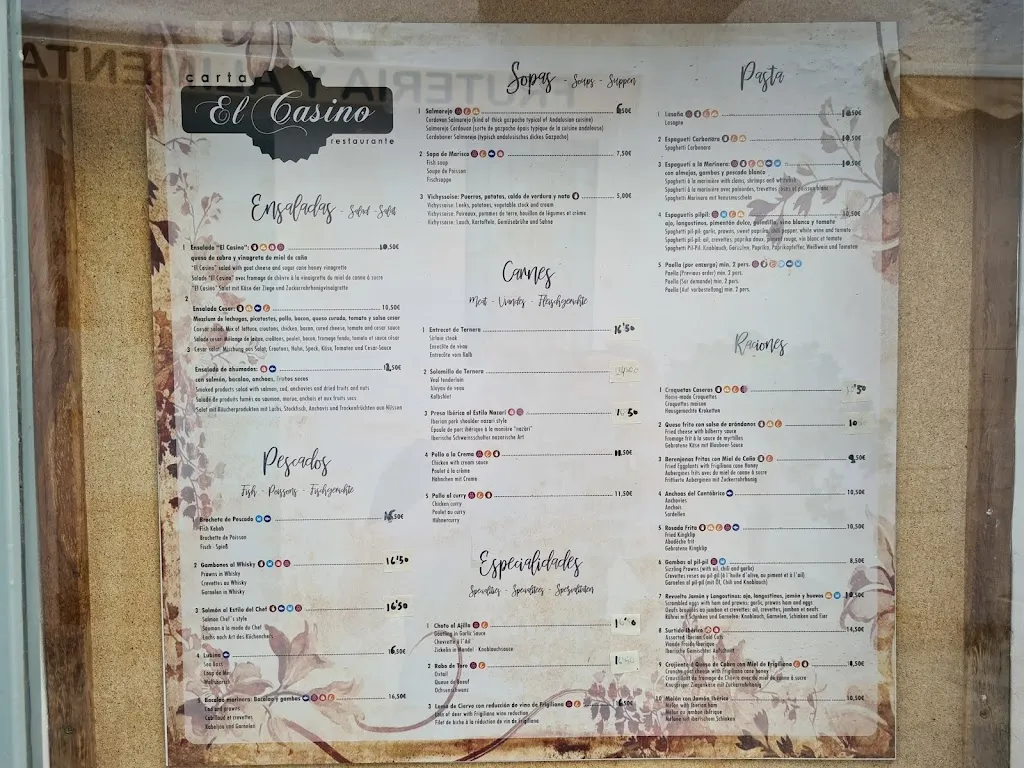 carta
El Casino
restaurante
Ensaladas - Salad - Salat
1 Ensalada "El Casino": 10.50€
queso de cabra y vinagreta de miel de caña
"El Casino" salad with goat cheese and sugar cane honey vinagrette
Salade "El Casino" avec fromage de chèvre à la vinaigrette du miel de canne à sucre
"El Casino" Salat mit Käse der Ziege und Zuckerrohrhonigvinaigrette
2
Ensalada Cesar: 10,50€
Mezclum de lechugas, picatostes, pollo, bacon, queso curado, tomate y salsa cesar
Caesar salad: Mix of lettuce, croutons, chicken, bacon, cured cheese, tomato and cesar sauce
Salade cesar: Mélange de laitue, croûtons, poulet, bacon, fromage fondu, tomate et sauce césar
Cesar salat: Mischung aus Salat, Croutons, Huhn, Speck, Käse, Tomaten und Cesar-Sauce
3
Ensalada de ahumados: ,50€
con salmón, bacalao, anchoas, frutos secos
Smoked products salad with salmon, cod, anchovies and dried fruits and nuts
Salade de produits fumés au saumon, morue, anchois et aux fruits secs
Salat mit Räucherprodukten mit Lachs, Stockfisch, Anchovis und Trockenfrüchten aus Nüssen
Pescados
Fish - Poissons - Fischgerichte
1 Brocheta de Pescado 16,50€
Fish Kebab
Brochette de Poisson
Fisch - Spieß
2 Gambones al Whisky 16'50
Prawns in Whisky
Crevettes au Whisky
Garnelen in Whisky
3 Salmón al Estilo del Chef 16'50
Salmon Chef´s style
Saumon à la mode du Chef
Lachs nach Art des Küchenchef
4 Lubina 16,50€
Sea Bass
Loup de Mer
Wolfsbarsch
5 Bacalao marinera: Bacalao y gambas 16,50€
Cod and prawns
Cabillaud et crevettes
Kabeljau und Garnelen
Sopas - Soups - Suppen
1 Salmorejo 6,50€
Cordovan Salmorejo (kind of thick gazpacho typical of Andalusian cuisine)
Salmorejo Cordouan (sorte de gazpacho épais typique de la cuisine andalouse)
Cordobaner Salmorejo (typisch andalusisches dickes Gazpacho)
2 Sopa de Marisco 7,50€
Fish soup
Soupe de Poisson
Fischsuppe
3 Vichyssoise: Puerros, patatas, caldo de verdura y nata 5,00€
Vichyssoise: Leeks, potatoes, vegetable stock and cream
Vichyssoise: Poireaux, pommes de terre, bouillon de légumes et crème
Vichyssoise: Lauch, Kartoffeln, Gemüsebrühe und Sahne
Carnes
Meat - Viandes - Fleischgerichte
1 Entrecot de Ternera 16'50
Sirloin steak
Entrecôte de veau
Entrecôte vom Kalb
2 Solomillo de Ternera
Veal tenderloin
Aloyau de veau
Kalbsfilet
3 Presa Ibérica al Estilo Nazarí 50
Iberian pork shoulder nazari style
Épaule de porc ibérique à la manière "nazarí"
Iberische Schweinsschulter nazarische Art
4 Pollo a la Crema 11,50€
Chicken with cream sauce
Poulet à la crème
Hähnchen mit Creme
5 Pollo al curry 11,50€
Chicken curry
Poulet au curry
Hühnercurry
Especialidades
Specialties - Spécialités - Spezialitäten
1 Choto al Ajillo
Goatling in Garlic Sauce
Chevrette à l´Ail
Zicklein in Mandel - Knoblauchsauce
2 Rabo de Toro
Oxtail
Queue de Boeuf
Ochsenschwanz
3 Lomo de Ciervo con reducción de vino de Frigiliana 16,50€
Loin of deer with Frigiliana wine reduction
Filet de biche à la réduction de vin de Frigiliana
Pasta
1 Lasaña 10,50€
Lasagne
2 Espagueti Carbonara 10,50€
Spaghetti Carbonara
3 Espagueti a la Marinera: 10,50€
con almejas, gambas y pescado blanco
Spaghetti à la marinière with clams, shrimps and whitefish
Spaghetti à la marinière avec palourdes, crevettes roses et poisson blanc
Spaghetti Marinara mit Venusmuscheln
4 Espaguetis pilpil: 10,50€
ajo, langostinos, pimentón dulce, guindilla, vino blanco y tomate
Spaghetti pil-pil: garlic, prawns, sweet paprika, red pepper, white wine and tomato
Spaghetti pil-pil: ail, crevettes, paprika doux, piment rouge, vin blanc et tomate
Spaghetti Pil-Pil: Knoblauch, Garnelen, Paprika, Paprikapfeffer, Weißwein und Tomaten
5 Paella (por encargo) min. 2 pers.
Paella (Previous order) min. 2 pers.
Paella (Sur demande) min. 2 pers.
Paella (Auf vorbestellung) min. 2 pers.
Raciones
1 Croquetas Caseras 50
Home-made Croquettes
Croquettes maison
Hausgemachte Kroketten
2 Queso frito con salsa de arándanos 10
Fried cheese with bilberry sauce
Fromage frit à la sauce de myrtilles
Gebratene Käse mit Blaubeer-Sauce
3 Berenjenas Fritas con Miel de Caña ,50€
Fried Eggplants with Frigiliana cane Honey
Aubergines frits avec du miel de canne à sucre
Frittierte Auberginen mit Zuckerrohrhonig
4 Anchoas del Cantábrico 10,50€
Anchovies
Anchois
Sardellen
5 Rosada Frita 10,50€
Fried Kingklip
Abadèche frit
Gebratene Kingklip
6 Gambas al pil-pil 8,50€
Sizzling Prawns (with oil, chili and garlic)
Crevettes roses au pil-pil (à l´huile d´olive, au piment et à l´ail)
Garnelen al pil-pil (mit Öl, Chili und Knoblauch)
7 Revuelto Jamón y Langostinos: ajo, langostinos, jamón y huevos 10,50€
Scrambled eggs with ham and prawns: garlic, prawns, ham and eggs
Oeufs brouillés au jambon et crevettes: ail, crevettes, jambon et oeufs
Rührei mit Schinken und Garnelen: Knoblauch, Garnelen, Schinken und Eier
8 Surtido Ibérico 14,50€
Assorted Iberian Cold Cuts
Viande Froide Ibérique
Iberische Gemischter Aufschnitt
9 Crujiente de Queso de Cabra con Miel de Frigiliana ,50€
Crunchy goat cheese with Frigiliana cane honey
Croustillant de fromage de Chèvre avec du miel de canne à sucre
Knuspriger Ziegenkäse mit Zuckerrohrhonig
10 Melón con Jamón Ibérico 10,50€
Melon with Iberian ham
Melon au jambon ibérique
Melone mit iberischem Schinken